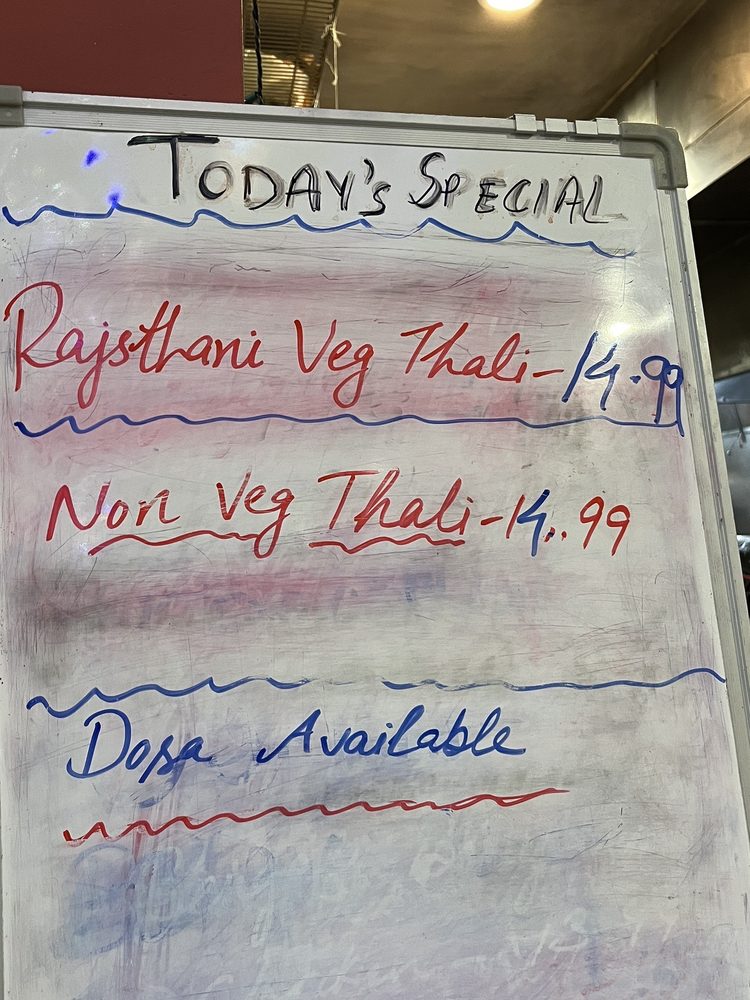 TODAY'S SPECIAL
Rajsthani Veg Thali - 14.99
Non Veg Thali - 14..99
Dosa Available